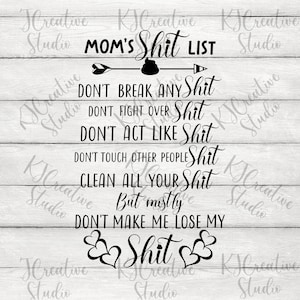 MOM'S Shit LIST
DON'T BREAK ANY Shit
DON'T FIGHT OVER Shit
DON'T ACT LIKE Shit
DON'T TOUCH OTHER PEOPLE Shit
CLEAN ALL YOUR Shit
But mostly
DON'T MAKE ME LOSE MY
Shit
KJCreative
Studio